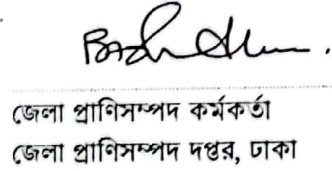 জেলা প্রাণিসম্পদ কর্মকর্তা
জেলা প্রাণিসম্পদ দপ্তর, ঢাকা